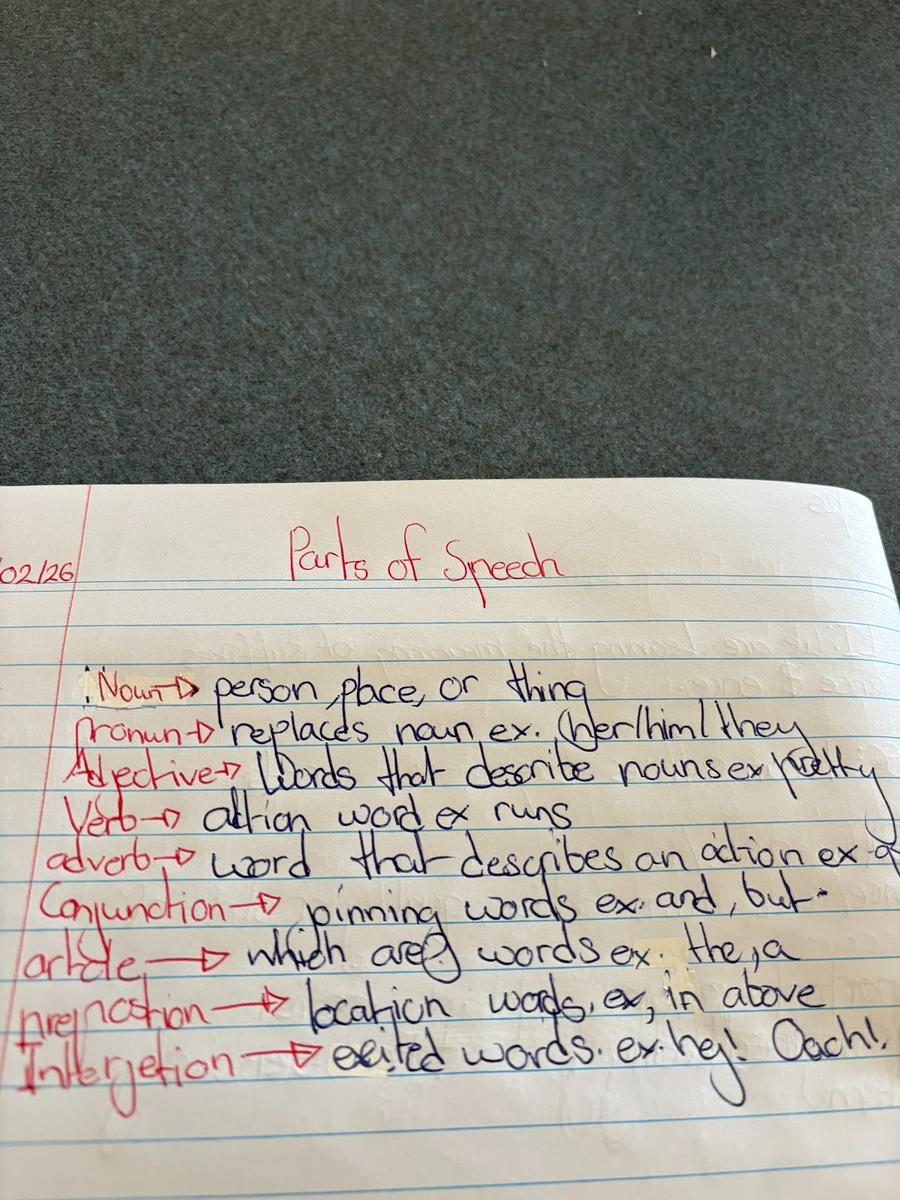 Parts of Speech
02/26
Noun → person, place, or thing
Pronun → replaces noun ex. (her/him/they
Adjective → Words that describe nouns ex pretty
Verb → action word ex runs
adverb → word that describes an action ex.
Conjunction → joinning words ex. and, but
article → which are words ex. the, a
Prepostion → location words. ex, in above
Interjetion → exited words. ex. hey! Oach!